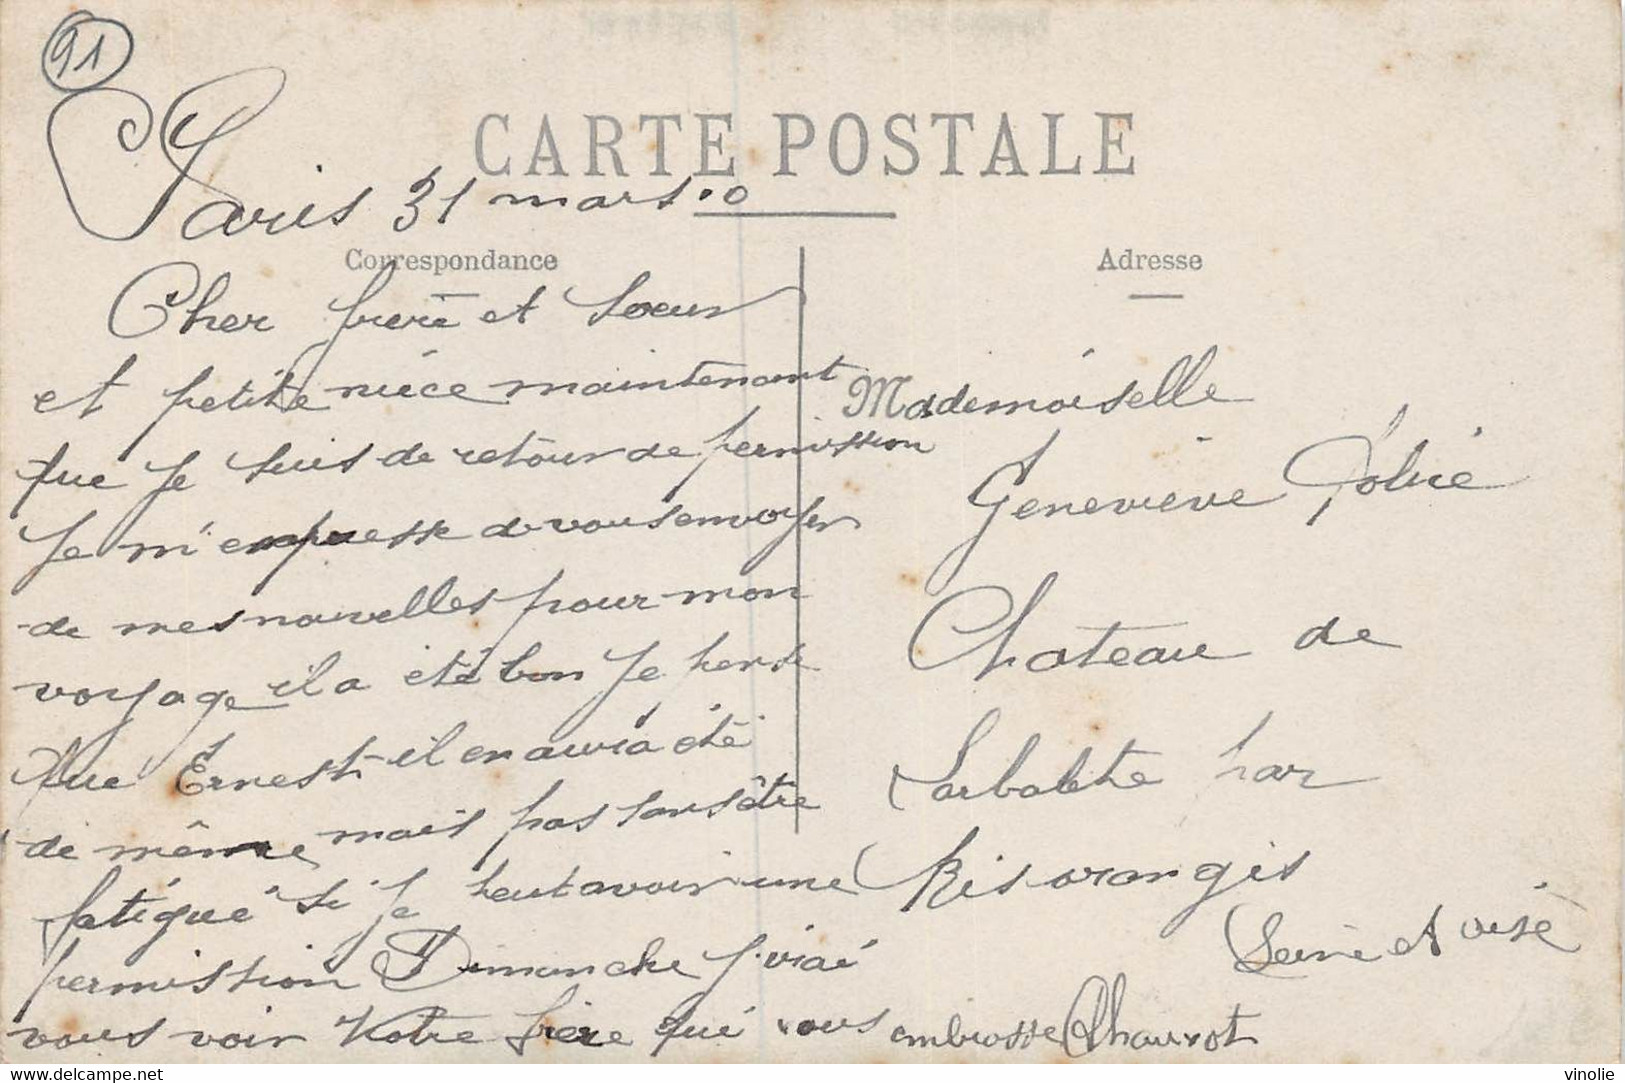 91
CARTE POSTALE
Paris 31 mars
Correspondance
Cher frère et Soeur
et petite nièce maintenant
que Je suis de retour de permission
Je m'empresse de vous envoyer
de mes nouvelles pour mon
voyage il a été bon Je pense
que Ernest il en aura été
de même mais pas sans être
fatigué si Je peut avoir une
permission Dimanche J'irai
vous voir Votre frère qui vous embrosse Chauvot
Adresse
Mademoiselle
Geneviève
Chateau de
Larbalète par
Ris orangis
Seine et oise
www.delcampe.net
vinolie